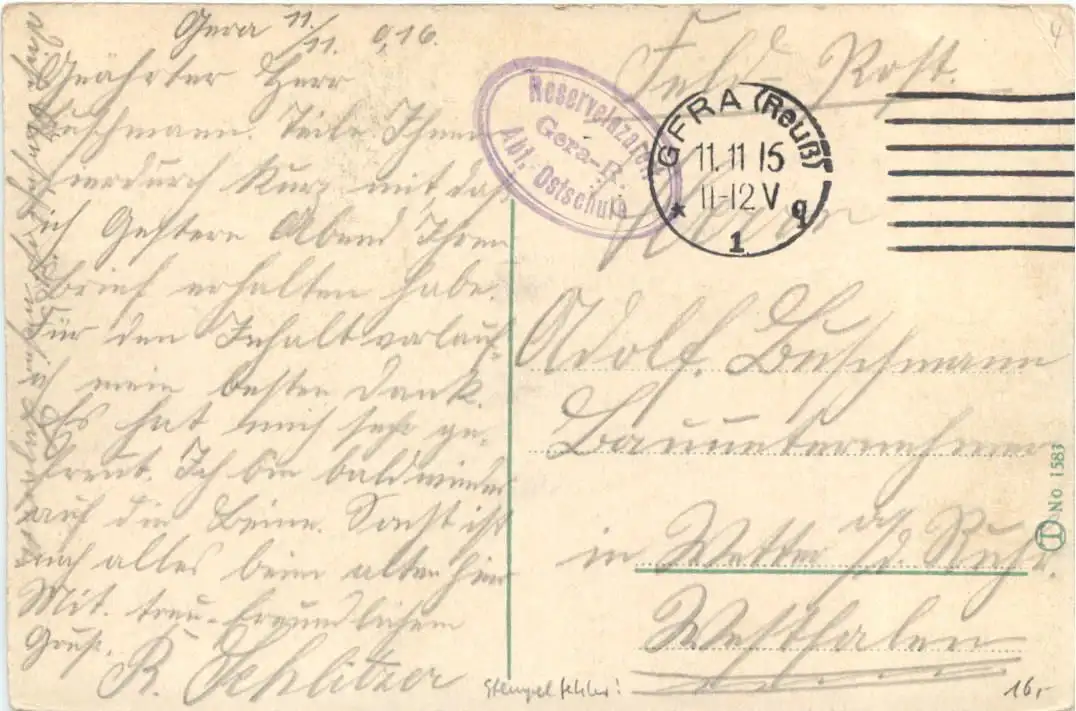 Gera 11/11. 9,16.
Geährter Herr
Buschmann. Teile Ihnen
hierdurch kurz mit, daß
ich Gestern Abend Ihren
Brief erhalten habe.
Für den Inhalt
mein besten Dank.
Es hat mich sehr ge-
freut. Ich bin bald wieder
auf die Beine. Sonst ist
noch alles beim alten hier
Mit. treu-freundlichem
Gruß.
R. Schlitzer
Feld-Post.
Reservelazarett
Gera-R.
Abt. Ostschule
GERA (Reuß)
11.11 15
11-12 V
* 1 q
Herrn
Adolf. Buschmann
Bauunternehmer
in Wetter a/d. Ruhr.
Westfalen
No 1583
Stempelfehler!
16,-
4